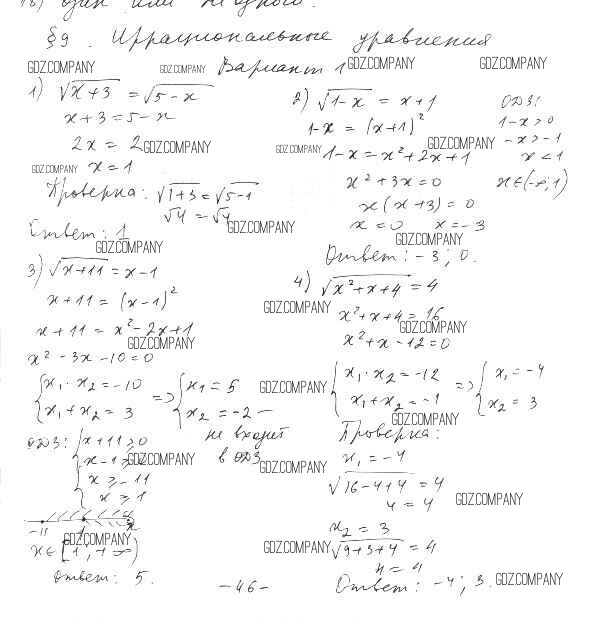 18) один или ни одного.
§9. Иррациональные уравнения
Вариант 1
GDZ.COMPANY GDZ.COMPANY GDZ.COMPANY GDZ.COMPANY
1) √x+3 = √5-x
x+3=5-x
2x = 2
GDZ.COMPANY
GDZ.COMPANY x=1
Проверка: √1+3 = √5-1
√4 = √4
GDZ.COMPANY
Ответ: 1
GDZ.COMPANY
2) √1-x = x+1
GDZ.COMPANY
1-x = (x+1)²
GDZ.COMPANY
1-x = x²+2x+1
x²+3x=0
x(x+3)=0
x=0 x=-3
GDZ.COMPANY
Ответ: -3; 0.
ОДЗ:
1-x>0
-x>-1
x<1
x∈(-∞;1)
3) √x+11 = x-1
x+11 = (x-1)²
x+11 = x²-2x+1
GDZ.COMPANY
x²-3x-10=0
{x₁·x₂=-10
{x₁+x₂=3
=> {x₁=5
{x₂=-2 —
не входит
в ОДЗ
ОДЗ: {x+11≥0
{x-1≥
GDZ.COMPANY
{x≥-11
x≥1
-11 1 x
GDZ.COMPANY
x∈[1;+∞)
Ответ: 5.
4) √x²+x+4 = 4
GDZ.COMPANY
x²+x+4=16
GDZ.COMPANY
x²+x-12=0
GDZ.COMPANY
{x₁·x₂=-12
{x₁+x₂=-1
=> {x₁=-4
{x₂=3
GDZ.COMPANY
Проверка:
x₁=-4
GDZ.COMPANY
√16-4+4 = 4
4=4
GDZ.COMPANY
x₂=3
GDZ.COMPANY
√9+3+4 = 4
4=4
Ответ: -4; 3.
GDZ.COMPANY
-46-